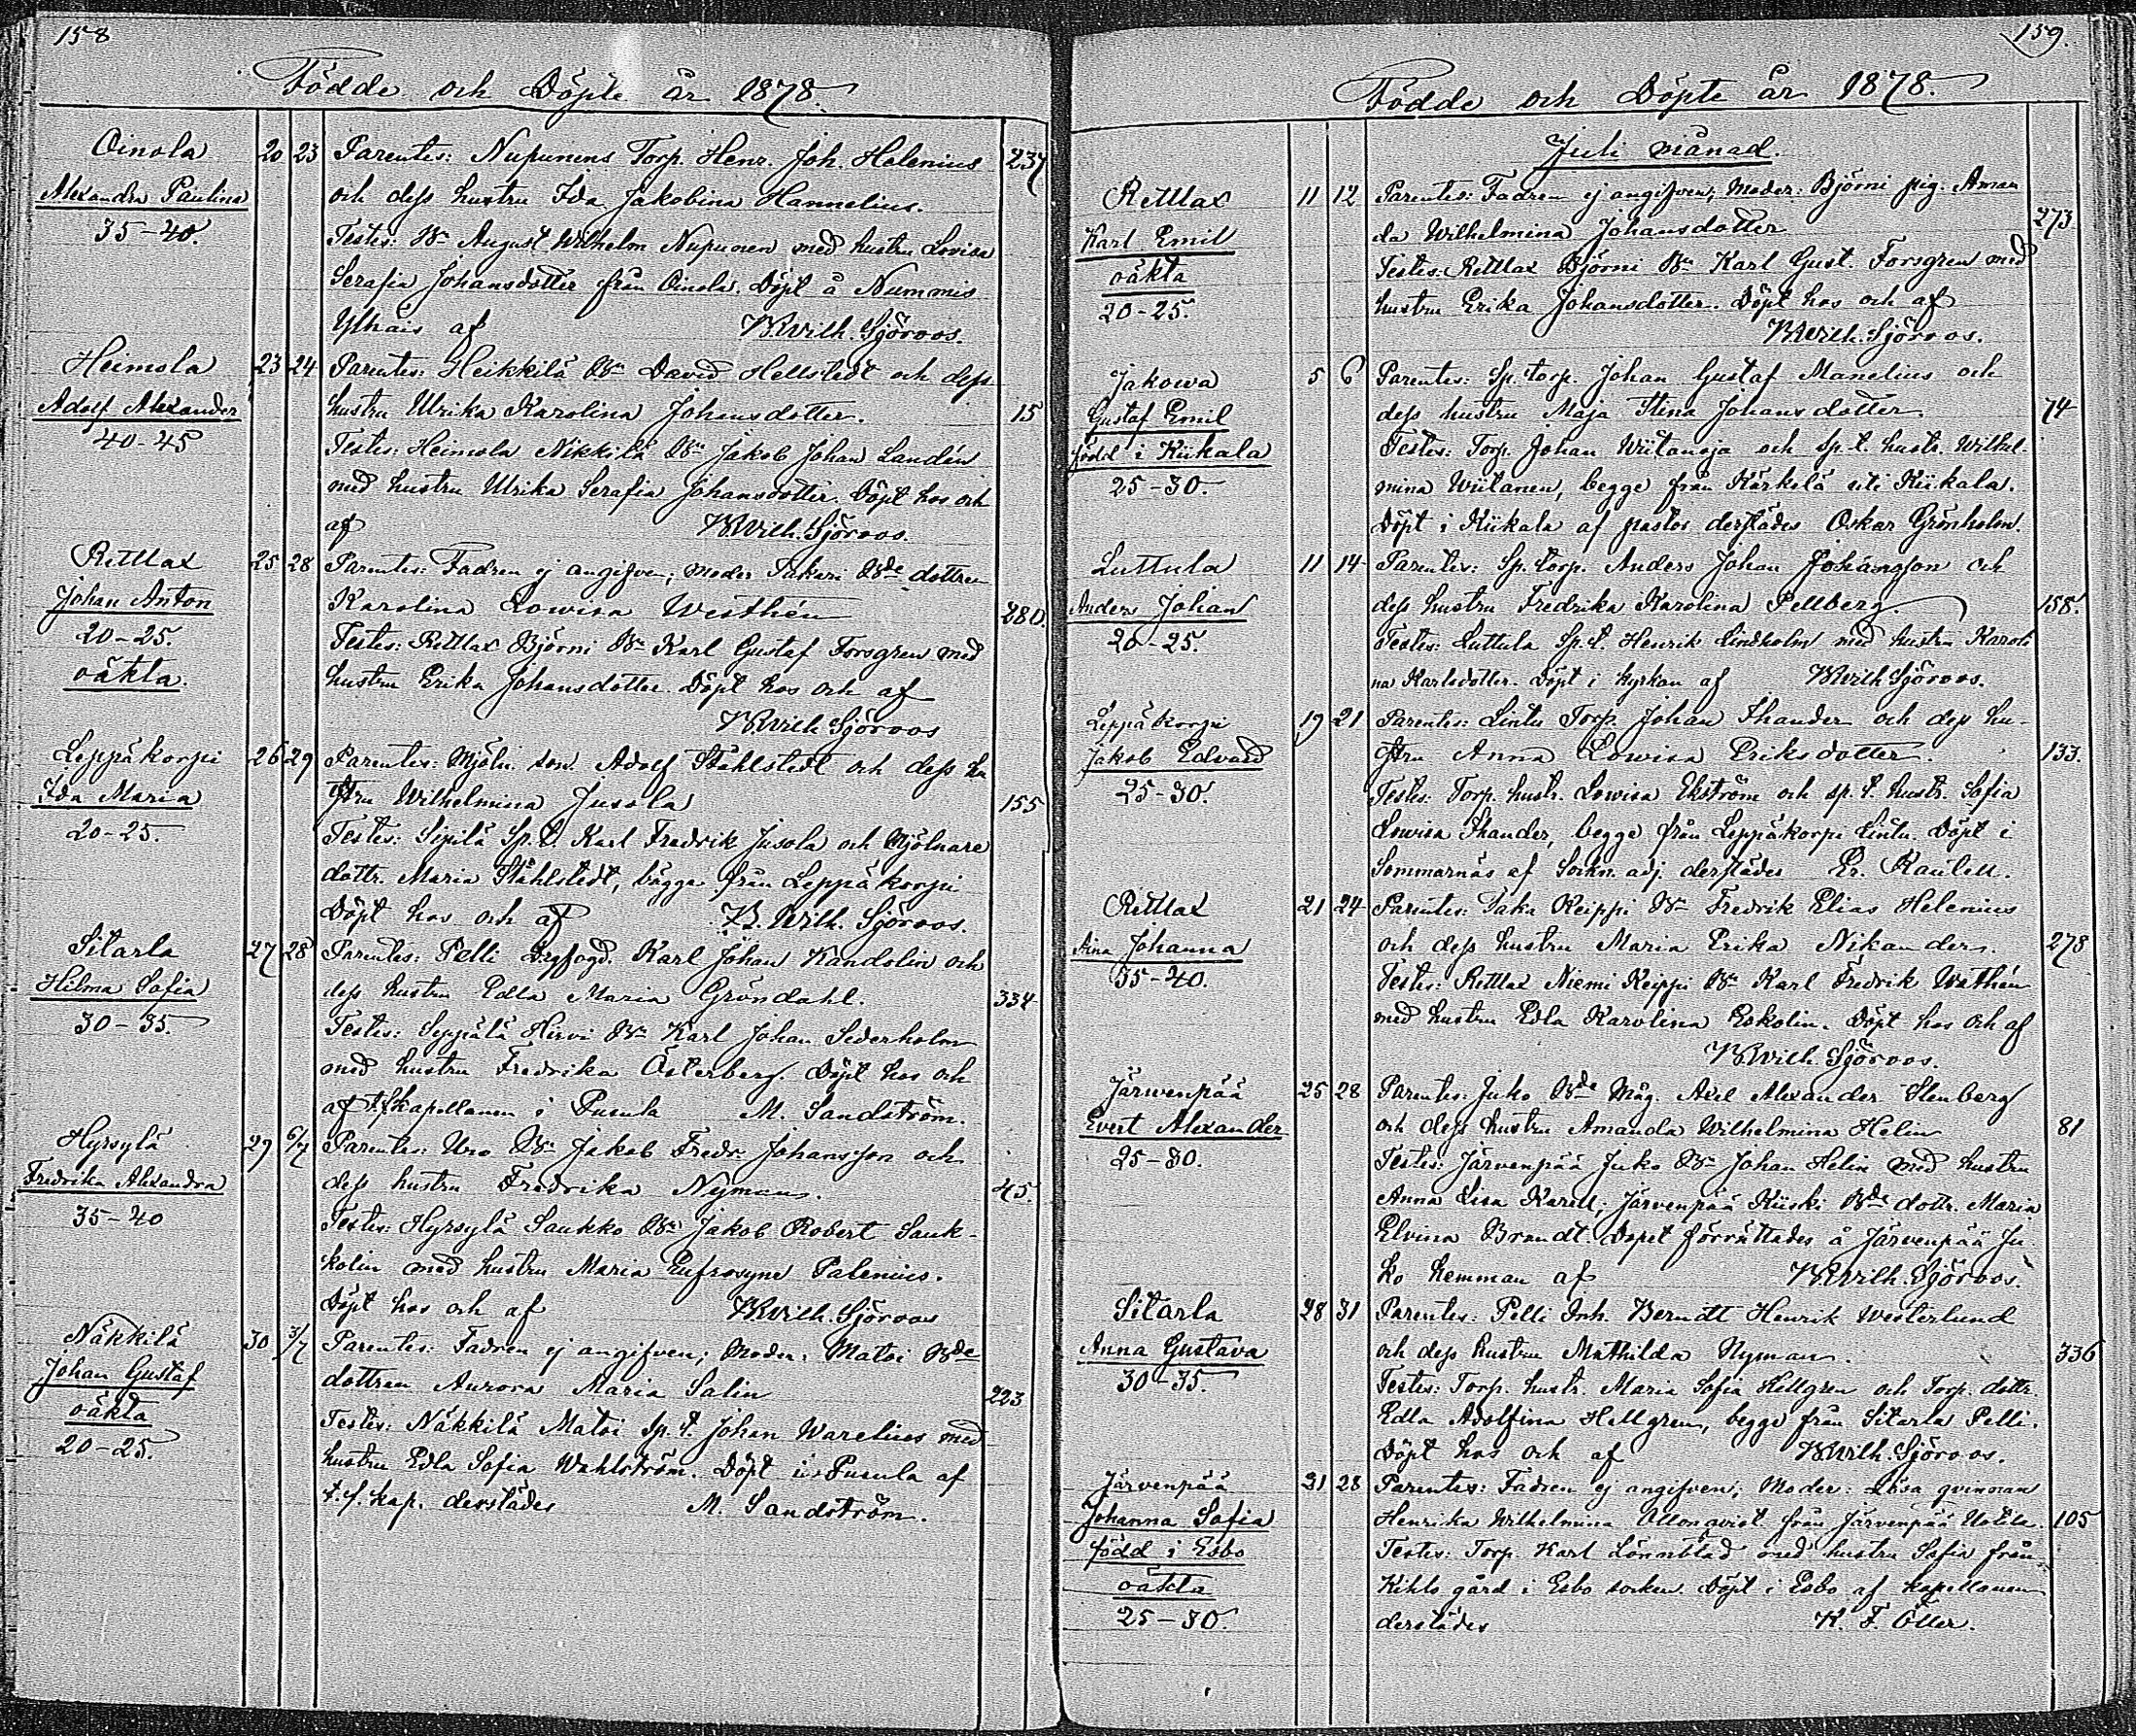 158
Födde och Döpte år 1878.
Oinola 20 23 Parentes: Nupunens Torp. Henr. Joh. Helenius 237
Alexandra Paulina och dess hustru Ida Jakobina Hannelius.
35-40. Testes: Bn August Wilhelm Nupunen med hustru Lovisa
Serafia Johansdotter från Oinola. Döpt å Nummis
Ylhäis af KWilh. Sjöroos.
Heimola 23 24 Parentes: Heikkilä Bn David Hellstedt och dess
Adolf Alexander hustru Ulrika Karolina Johansdotter. 15
40-45 Testes: Heimola Nikkilä Bn Jakob Johan Landén
med hustru Ulrika Serafia Johansdotter. Döpt hos och
af KWilh. Sjöroos.
Rettlax 25 28 Parentes: Fadren ej angifven; moder Sakari Bde dottren
Johan Anton Karolina Lowisa Westhén 280.
20-25. Testes: Rettlax Björni Bn Karl Gustaf Forsgren med
oäkta. hustru Erika Johansdotter. Döpt hos och af
KWilh Sjöroos
Leppäkorpi 26 29 Parentes: Mjöln. son Adolf Ståhlstedt och dess hu
Ida Maria stru Wilhelmina Jusola 155
20-25. Testes: Sipilä Sp. t. Karl Fredrik Jusola och Mjölnare
dottr. Maria Ståhlstedt, bägge från Leppäkorpi
Döpt hos och af K. Wilh. Sjöroos.
Sitarla 27 28 Parentes: Pelli Drgfogd. Karl Johan Kandolin och
Hilma Sofia dess hustru Edla Maria Gröndahl. 334
30-35. Testes: Seppälä Hirvi Bn Karl Johan Sederholm
med hustru Fredrika Österberg. Döpt hos och
af t.f. kapellanen i Pusula M. Sandström.
Hyrsylä 29 6/7 Parentes: Uro Bn Jakob Fredr. Johansson och
Fredrika Alexandra dess hustru Fredrika Nyman. 45.
35-40 Testes: Hyrsylä Saukko Bn Jakob Robert Sauk-
kolin med hustru Maria Eufrosyne Palenius.
Döpt hos och af KWilh. Sjöroos
Näkkilä 30 3/7 Parentes: Fadren ej angifven; Moder: Matoi Bde
Johan Gustaf dottren Aurora Maria Salin 223
oäkta Testes: Näkkilä Matoi Sp. t. Johan Warelius med
20-25. hustru Edla Sofia Wahlström. Döpt i Pusula af
t. f. kap. derstädes M. Sandström.
159.
Födde och Döpte år 1878.
Juli månad.
Rettlax 11 12 Parentes: Fadren ej angifven; Moder: Björni pig. Aman
Karl Emil da Wilhelmina Johansdotter 273
oäkta Testes: Rettlax Björni Bn Karl Gust. Forsgren med
20-25. hustru Erika Johansdotter. Döpt hos och af
KWilh. Sjöroos.
Jakowa 5 6 Parentes: Sp. torp. Johan Gustaf Manelius och
Gustaf Emil dess hustru Maja Stina Johansdotter. 74
född i Kiikala Testes: Torp. Johan Wiitanoja och Sp. t. hustr. Wilhel-
25-30. mina Wiitanen, begge från Kärkelä uti Kiikala.
Döpt i Kiikala af pastor derstädes Oskar Grönholm.
Luttula 11 14 Parentes: Sp. torp. Anders Johan Johansson och
Anders Johan dess hustru Fredrika Karolina Pellberg. 158.
20-25. Testes: Luttula Sp. t. Henrik Lindholm med hustru Karoli
na Karlsdotter. Döpt i kyrkan af KWilh Sjöroos.
Leppäkorpi 19 21 Parentes: Lintu Torp. Johan Thander och dess hu-
Jakob Edvard stru Anna Lowisa Eriksdotter. 133.
25-30. Testes: Torp. hustr. Lowisa Ekström och sp. t. hustr. Sofia
Lowisa Thander, begge från Leppäkorpi Lintu. Döpt i
Sommarnäs af Sockn. adj. derstädes
Rettlax 21 24 Parentes: Taka Keippi Bn Fredrik Elias Helenius
Aina Johanna och dess hustru Maria Erika Nikander. 278
35-40. Testes: Rettlax Niemi Keippi Bn Karl Fredrik Wathén
med hustru Edla Karolina Eskolin. Döpt hos och af
KWilh. Sjöroos.
Järwenpää 25 28 Parentes: Juko Bde Måg. Axel Alexander Stenberg
Evert Alexander och dess hustru Amanda Wilhelmina Helin 81
25-30. Testes: Järvenpää Juko Bn Johan Helin med hustru
Anna Lisa Karell; Järvenpää Kiiski Bde dottr. Maria
Elvina Brandt. Dopet förrättades å Järvenpää Ju-
ko hemman af KWilh. Sjöroos.
Sitarla 28 31 Parentes: Pelli Inh. Berndt Henrik Westerlund
Anna Gustava och dess hustru Mathilda Nyman. 336
30-35. Testes: Torp. hustr. Maria Sofia Hellgren och Torp. dottr.
Edla Adolfina Hellgren, begge från Sitarla Pelli.
Döpt hos och af KWilh. Sjöroos.
Järvenpää 31 28 Parentes: Fadren ej angifven; Moder: Lösa qvinnan
Johanna Sofia Henrika Wilhelmina Allonqvist från Järvenpää Uotila. 105
född i Esbo Testes: Torp. Karl Lönnblad med hustru Sofia från
oäkta Kihls gård i Esbo socken. Döpt i Esbo af kapellanen
25-30. derstädes K. F. Öller.